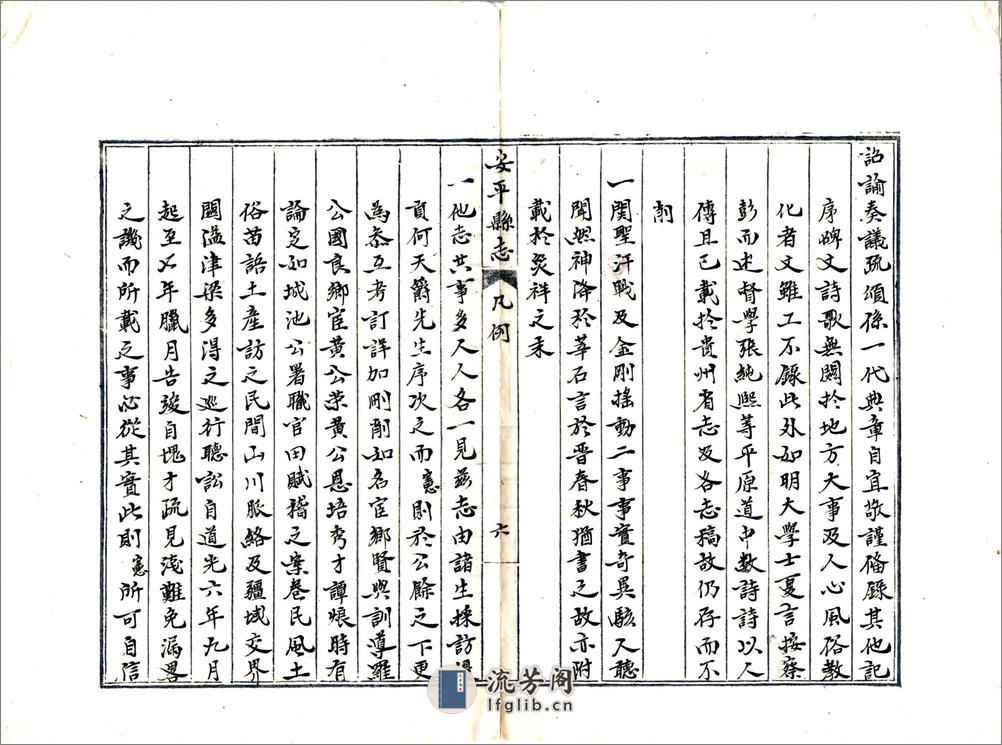 詔諭奏議疏頌係一代典章自宜敬謹備錄其他記
序碑文詩歌無關扵地方大事及人心風俗教
化者文雖工不錄此外如明大學士夏言按察
彭而述督學張純熙等平原道中數詩詩以人
傳且已載扵貴州省志及各志稿故仍存而不
削
一関聖汗戰及金剛搖動二事事實奇異駭人聽
聞然神降於莘石言於晋春秋猶書之故亦附
載於災祥之末
安平縣志 凡例 六
一他志共事多人人各一見兹志由諸生採訪
貢何天爵先生序次之而憲則於公餘之下更
為叅互考訂詳加刪削如名宦鄉賢與訓導羅
公國良鄉宦黄公榮黄公恩培秀才譚焜時有
論定如城池公署職官田賦稽之案卷民風土
俗苗語土產訪之民間山川脈絡及疆域交界
關溢津梁多得之巡行聽訟自道光六年九月
起至次年臘月告竣自愧才疏見淺難免漏畧
之譏而所載之事必從其實此則憲所可自信
流芳阁
lfglib.cn